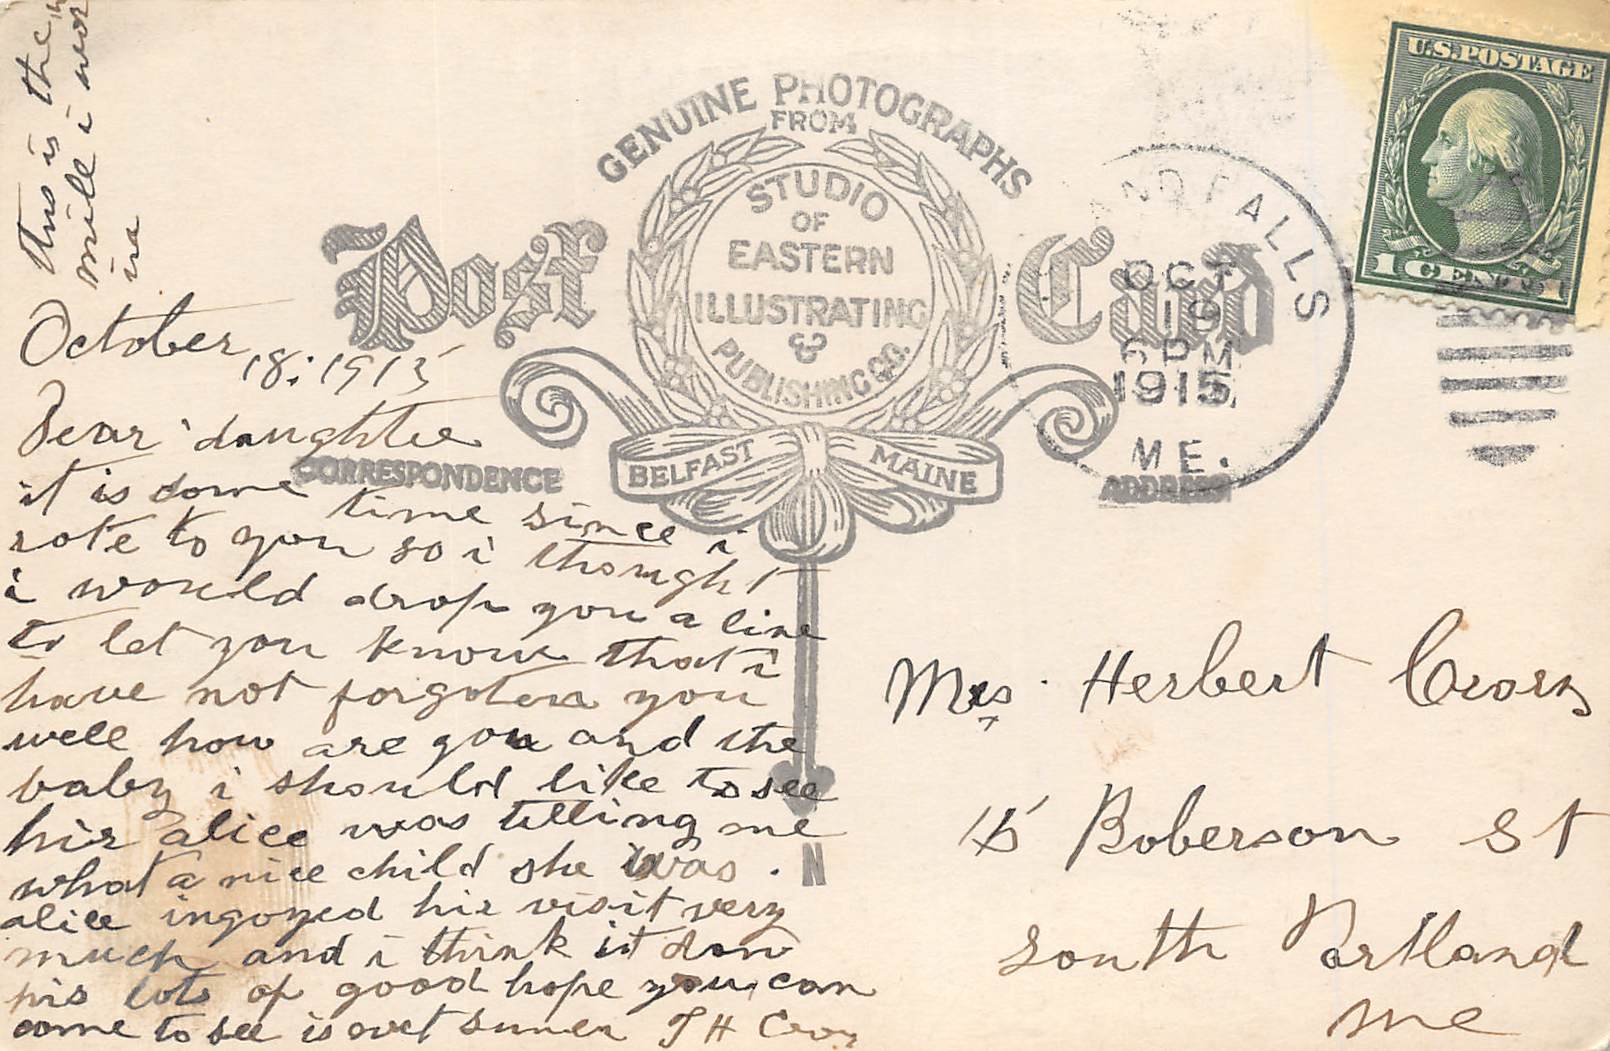 This is the
mill i wor
in
October 18, 1915
Dear daughter
it is some time since i
rote to you so i thought
i would drop you a line
to let you know that i
have not forgoten you
well how are you and the
baby i should like to see
hir alice was telling me
what a nice child she was.
alice ingoyed hir visit very
much and i think it don
his lots of good hope you can
come to see is summer T H
GENUINE PHOTOGRAPHS
FROM
STUDIO
OF
EASTERN
ILLUSTRATING
&
PUBLISHING CO.
BELFAST MAINE
Post Card
CORRESPONDENCE
ADDRESS
N
U.S. POSTAGE
1 CENT 1
FALLS
OCT
19
6 PM
1915
ME.
Mrs. Herbert
15 Boberson St
South Portland
Me